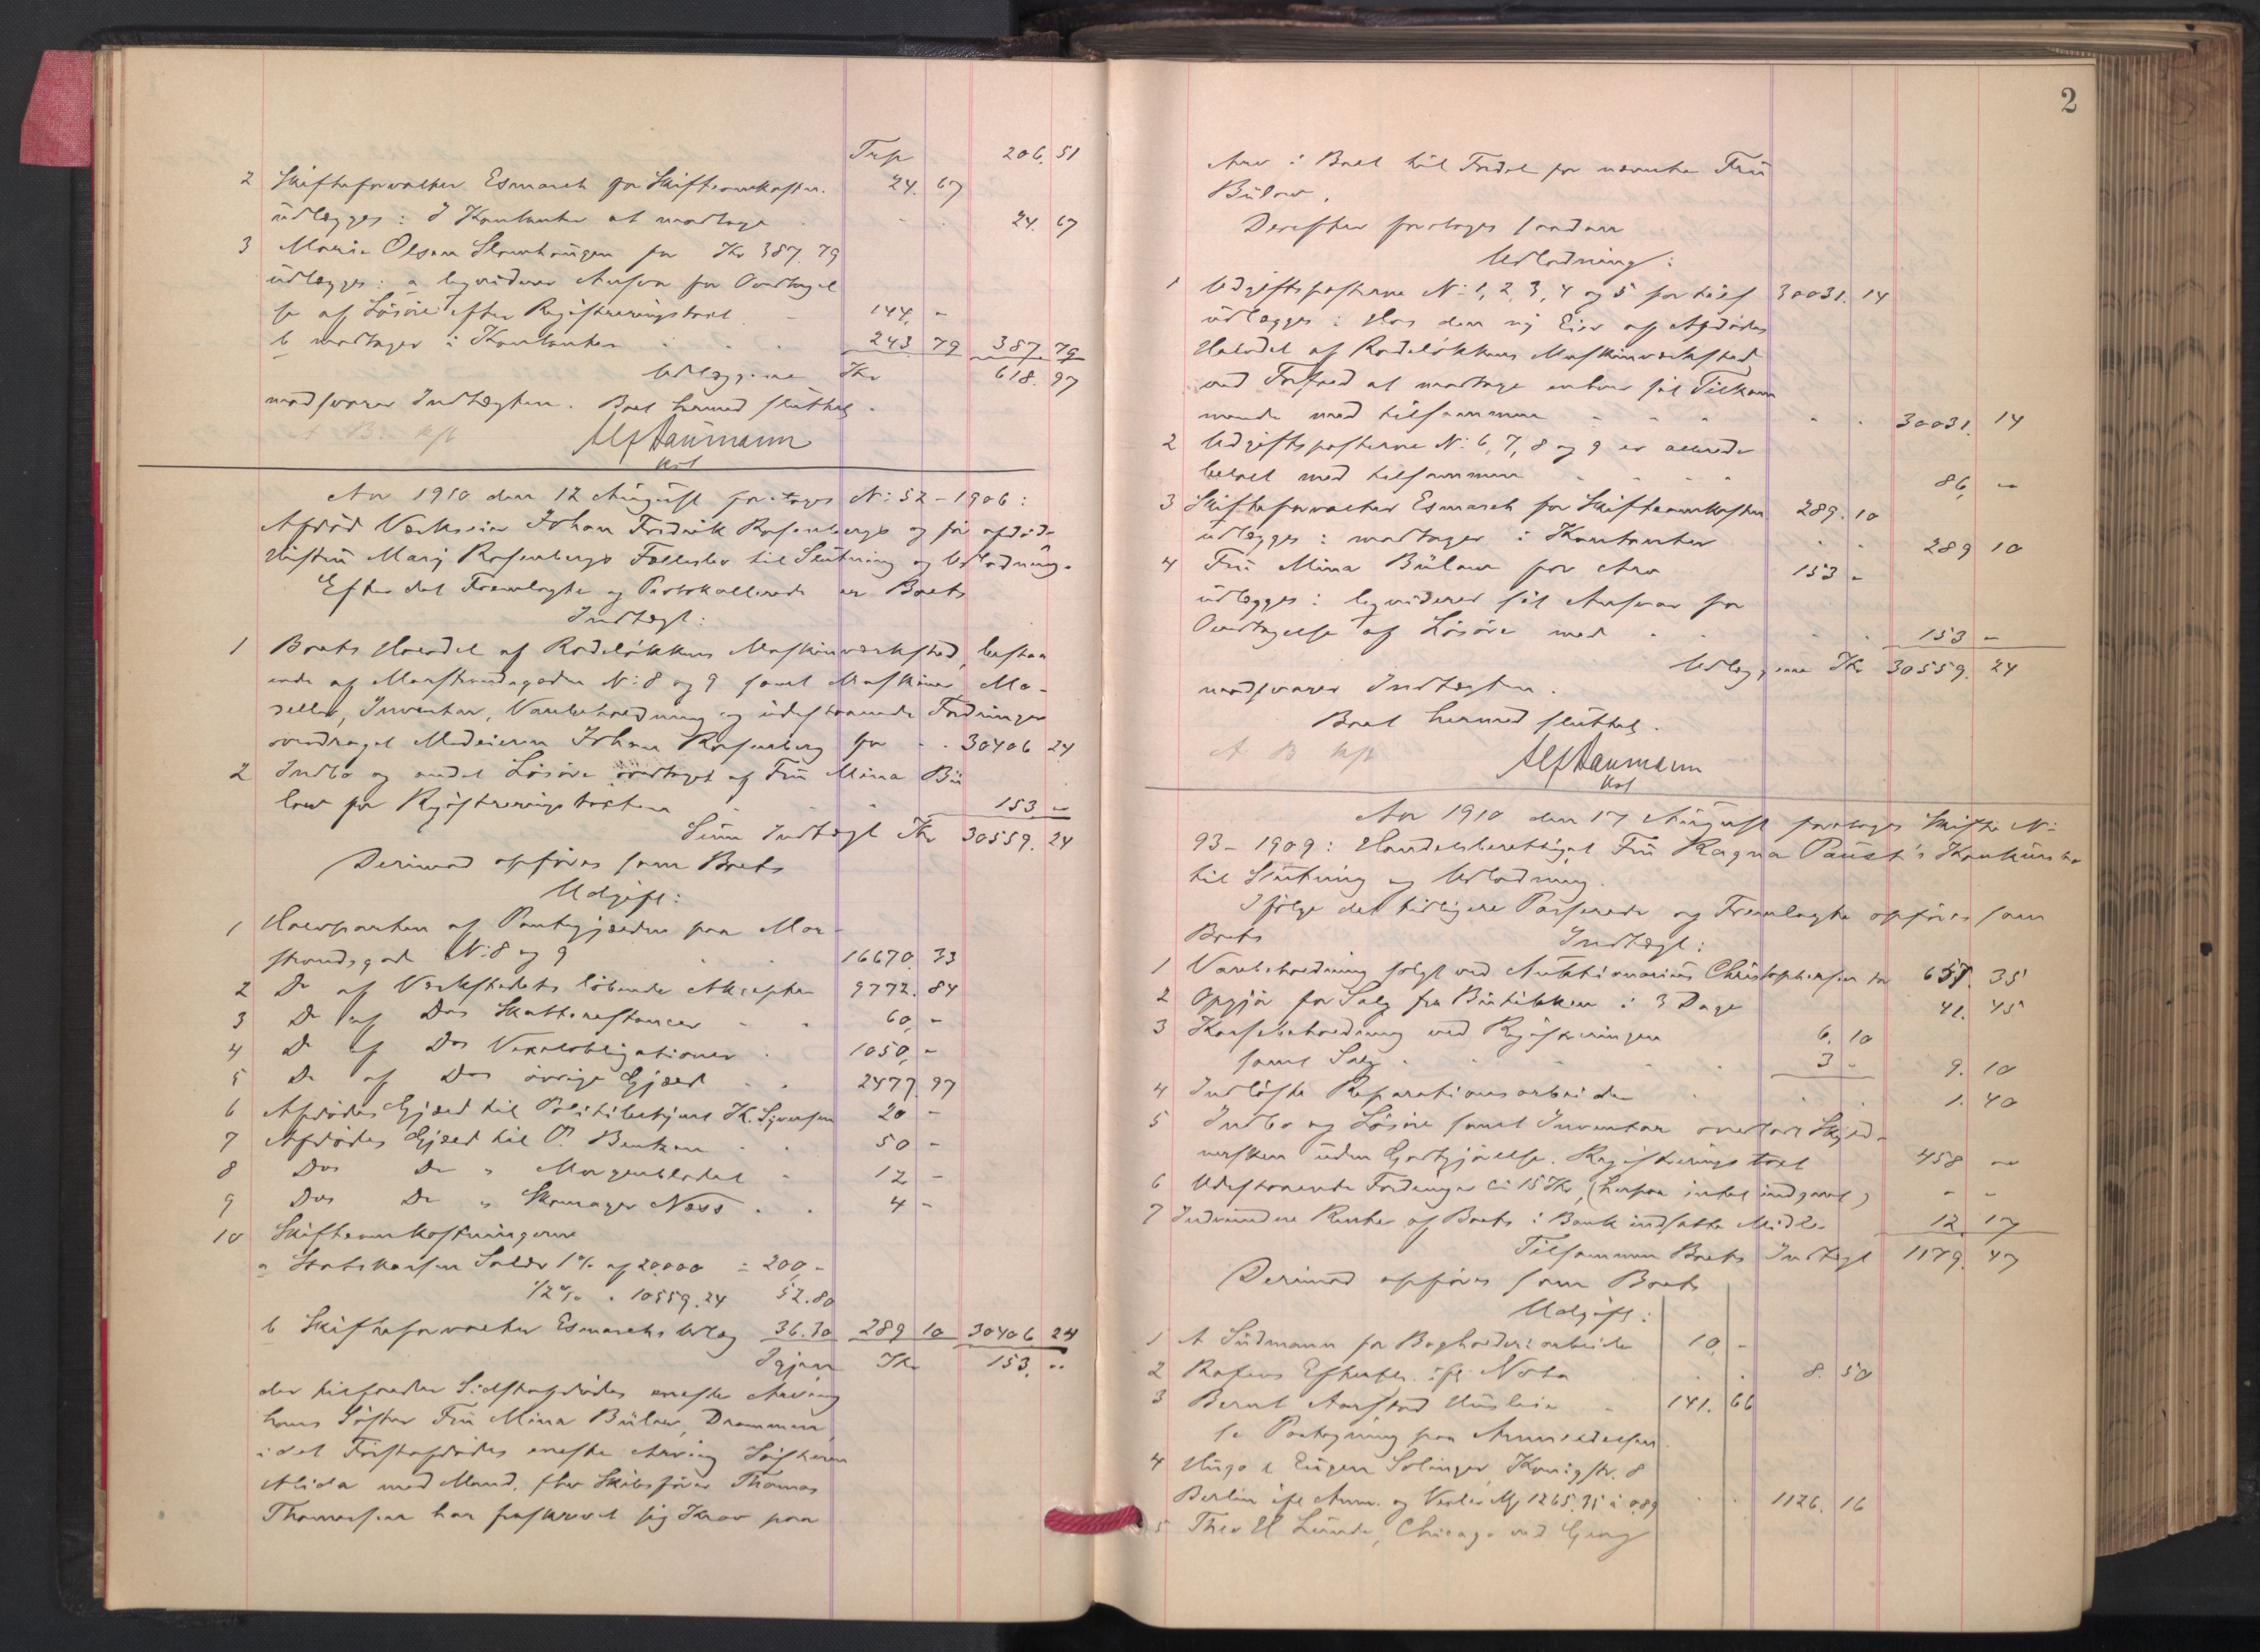 Trp 206. 51
2 Skifteforvalter Esmarch for Skifteomkostn. 24. 67
udlægges: I Kontanter at modtage 24. 67
3 Marie Olsen for Kr 387. 79
udlægges: a liqviderer Ansvar for Overtagel
se af Løsøre efter Registreringstaxt - 144, -
b modtager i Kontanter 243 79 387. 79
Udlæggene Kr 618. 97
modsvarer Indtægten. Boet hermed sluttet.
Alf Naumann
Aar 1910 den 12 August foretoges N: 52 - 1906:
Afdød Værkseier Johan Fredrik Rosenbergs og før afdøde
Hustru Mary Rosenbergs Fællesbo til Slutning og Udlodning.
Efter det Fremlagte og Protokollerede er Boets
Indtægt:
1 Boets Halvdel af Rodeløkkens Maskinværksted, bestaa
ende af Marstrandsgaden N: 8 og 9 samt Maskiner, Mo-
deller, Inventar, Varebeholdning og udestaaende Fordringer
overdraget Medeieren Johan Rosenberg for 30406 24
2 Indbo og andet Løsøre overtaget af Fru Mina Bü
low for Registreringstaxten 153 -
Sum Indtægt Kr 30559. 24
Derimod opføres som Boets
Udgift:
1 Halvparten af Pantegjælden paa Mar-
strandsgade N: 8 og 9 16670. 33
2 Do af Værkstedets løbende Aksepter 9772. 84
3 Do af Dos Skatterestancer - 60, -
4 Do af Dos Vexelobligationer 1050, -
5 Do af Dos øvrige Gjæld 2477. 97
6 Afdødes Gjæld til Politibetjent K. Syversen 20 -
7 Afdødes Gjæld til P. Bentzen 50 -
8 Dos Do " Morgenbladet - 12 -
9 Dos Do " Skomager Næss 4 -
10 Skifteomkostningerne
a Statskassen Saldo 1% af 20000 = 200, -
1/2% " 10559. 24 52. 80
b Skifteforvalter Esmarchs Udlæg 36. 30 289 10 30406. 24
Igjen Kr 153. "
der tilfalder Sidstafdødes eneste Arving
hans Søster Fru Mina Bülow, Drammen,
idet Førstafdødes eneste Arving Søsteren
Alida med Mand, fhv Skibsfører Thomas
Thomassen har fraskrevet sig Krav paa
2
Arv i Boet til Fordel for nævnte Fru
Bülow.
Derefter foretoges saadan
Udlodning:
1 Udgiftsposterne N: 1, 2, 3, 4 og 5 for tils 30031. 14
udlægges: Hos den ny Eier af Afdødes
Halvdel af Rodeløkkens Maskinværksted
ved Forfald at modtage enhver sit Tilkom
mende med tilsammen 30031. 14
2 Udgiftsposterne N: 6, 7, 8 og 9 er allerede
betalt med tilsammen 86, -
3 Skifteforvalter Esmarch for Skifteomkostn 289. 10
udlægges: modtager i Kontanter 289 10
4 Fru Mina Bülow for Arv 153 -
udlægges: liqviderer sit Ansvar for
Overtagelse af Løsøre med 153 -
Udlæggene Kr 30559. 24
modsvarer Indtægten.
Boet hermed sluttet.
Alf Naumann
Aar 1910 den 17 August foretoges Skifte N:
93 - 1909: Handelsberettiget Fru Ragna Paust's Konkursbo
til Slutning og Udlodning.
Ifølge det tidligere Passerede og Fremlagte opføres som
Boets Indtægt:
1 Varebeholdning solgt ved Auktionarius Christophersen for 657. 35
2 Opgjør for Salg fra Butikken i 3 Dage 41. 45
3 Kassebeholdning ved Registreringen 6. 10
samt Salg 3 - 9. 10
4 Indløste Reparationsarbeider 1. 40
5 Indbo og Løsøre samt Inventar overladt Skyld-
nersken uden Godtgjørelse. Registreringstaxt 458 -
6 Udestaaende Fordringer ca 15 Kr, (herpaa intet indgaaet) - -
7 Indvundne Renter af Boets i Bank indsatte Midler 12. 17
Tilsammen Boets Indtægt 1179. 47
Derimod opføres som Boets
Udgift:
1 A Südmann for Bogholderiarbeide 10. -
2 Efterfl. ifl Nota 8. 50
3 Bernt Aarstad Husleie 141. 66
se Paategning paa Anmeldelsen.
4 Hugo & Eugen Solinger, Königstr. 8
Berlin ifl Anm. og Vexler Mk 1265. 35 à 0.89 1126. 16
5 Theo H Lunde, Chicago ved Georg